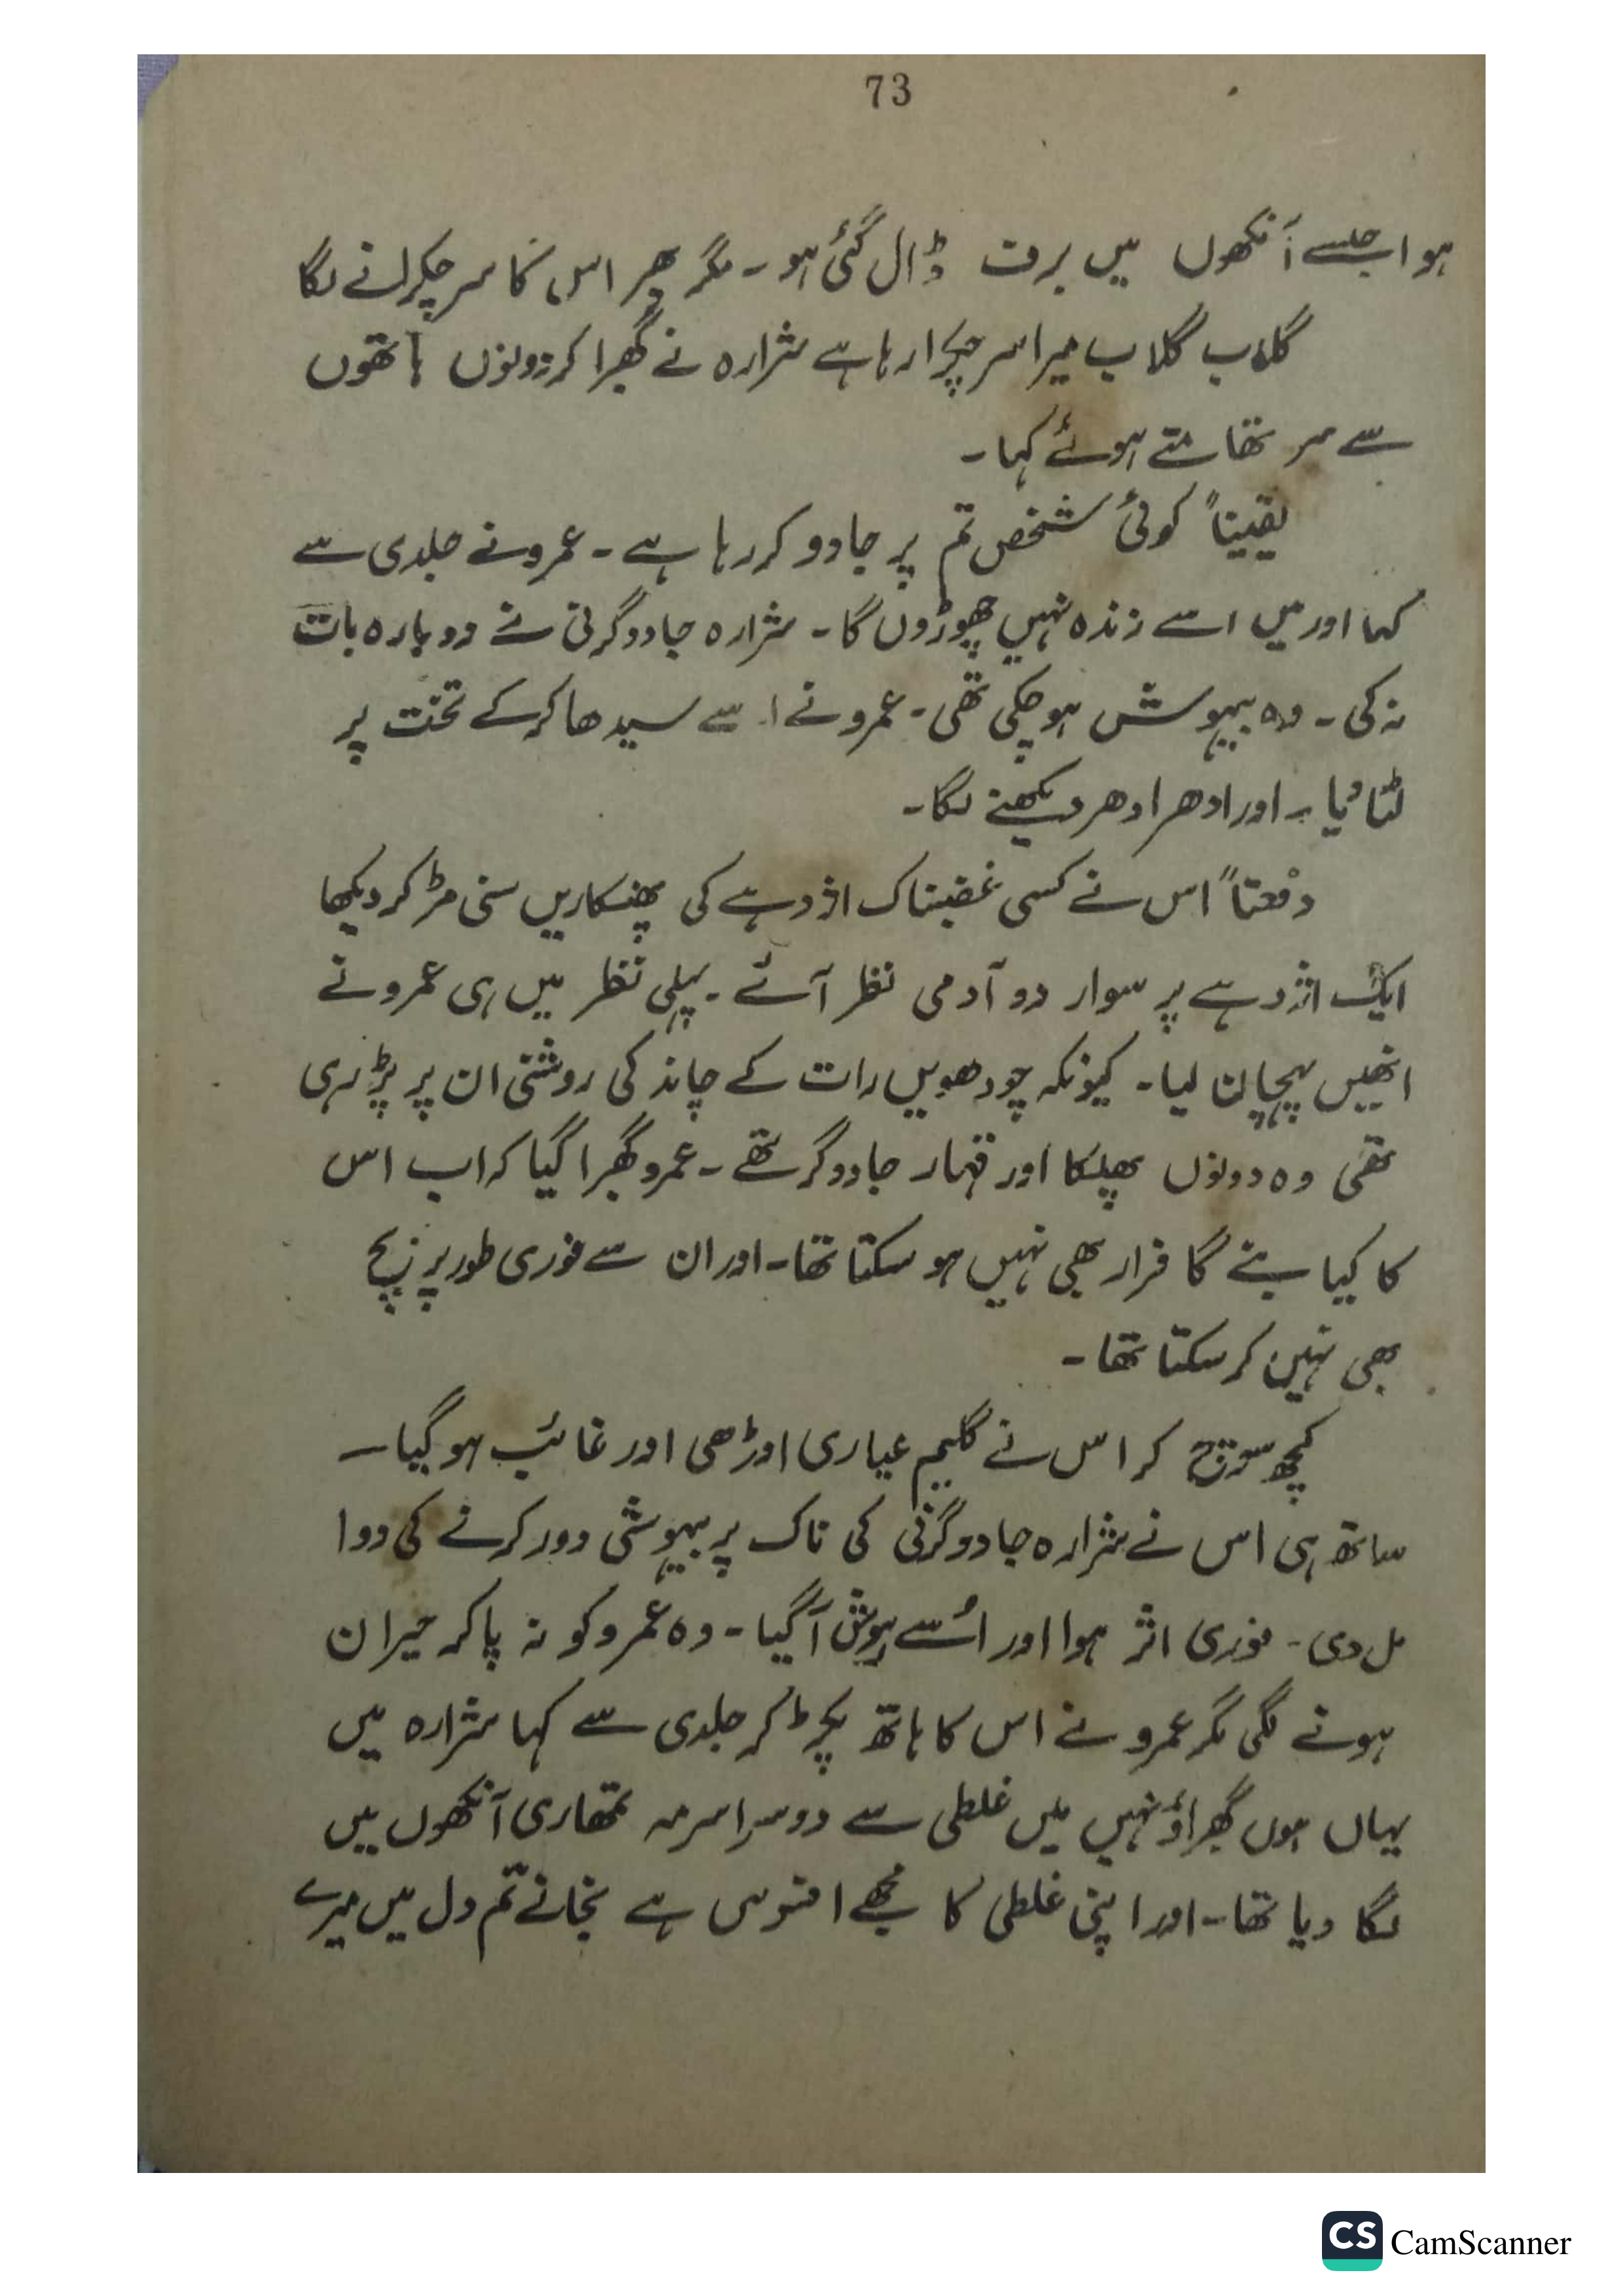 73
ہوا جیسے آنکھوں میں برف ڈال گئی ہو۔ مگر پھر اس کا سر چکرانے لگا
گلاب گلاب میرا سر چکرا رہا ہے شرارہ نے گھبرا کر دونوں ہاتھوں
سے سر تھامتے ہوئے کہا۔
یقیناً کوئی شخص تم پر جادو کر رہا ہے۔ عمرو نے جلدی سے
کہا اور میں اسے زندہ نہیں چھوڑوں گا۔ شرارہ جادوگرنی نے دوبارہ بات
نہ کی۔ وہ بیہوش ہو چکی تھی۔ عمرو نے اسے سیدھا کر کے تخت پر
لٹا دیا۔ اور ادھر ادھر دیکھنے لگا۔
دفعتاً اس نے کسی غضبناک اژدہے کی پھنکاریں سنی مڑ کر دیکھا
ایک اژدہے پر سوار دو آدمی نظر آئے۔ پہلی نظر میں ہی عمرو نے
انھیں پہچان لیا۔ کیونکہ چودھویں رات کے چاند کی روشنی ان پر پڑ رہی
تھی وہ دونوں پھلکا اور قہار جادوگر تھے۔ عمرو گھبرا گیا کہ اب اس
کا کیا بنے گا فرار بھی نہیں ہو سکتا تھا۔ اور ان سے فوری طور پر
بھی نہیں کر سکتا تھا۔
کچھ سوچ کر اس نے گلیم عیاری اوڑھی اور غائب ہو گیا۔
ساتھ ہی اس نے شرارہ جادوگرنی کی ناک پر بیہوشی دور کرنے کی دوا
مل دی۔ فوری اثر ہوا اور اُسے ہوش آ گیا۔ وہ عمرو کو نہ پا کر حیران
ہونے لگی مگر عمرو نے اس کا ہاتھ پکڑ کر جلدی سے کہا شرارہ میں
یہاں ہوں گھبراؤ نہیں میں غلطی سے دوسرا سرمہ تمھاری آنکھوں میں
لگا دیا تھا۔ اور اپنی غلطی کا مجھے افسوس ہے نجانے تم دل میں میرے
CS CamScanner